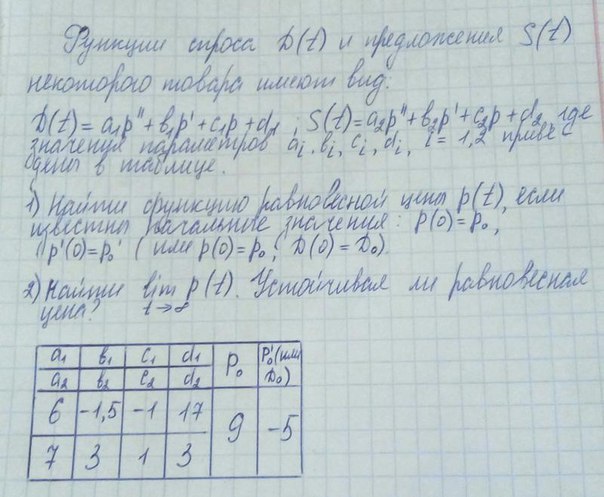 Функции спроса D(t) и предложения S(t)
некоторого товара имеют вид:
D(t) = a₁p'' + b₁p' + c₁p + d₁ ; S(t) = a₂p'' + b₂p' + c₂p + d₂, где
значения параметров aᵢ, bᵢ, cᵢ, dᵢ, i = 1,2 приве
дены в таблице.
1) Найти функцию равновесной цены p(t), если
известны начальные значения: p(0) = p₀,
p'(0) = p₀' (или p(0) = p₀; D(0) = D₀).
2) Найти lim p(t). Устойчивая ли равновесная
t→∞
цена?
a₁ b₁ c₁ d₁ P₀ P₀' (или
a₂ b₂ c₂ d₂ D₀)
6 -1,5 -1 17 9 -5
7 3 1 3